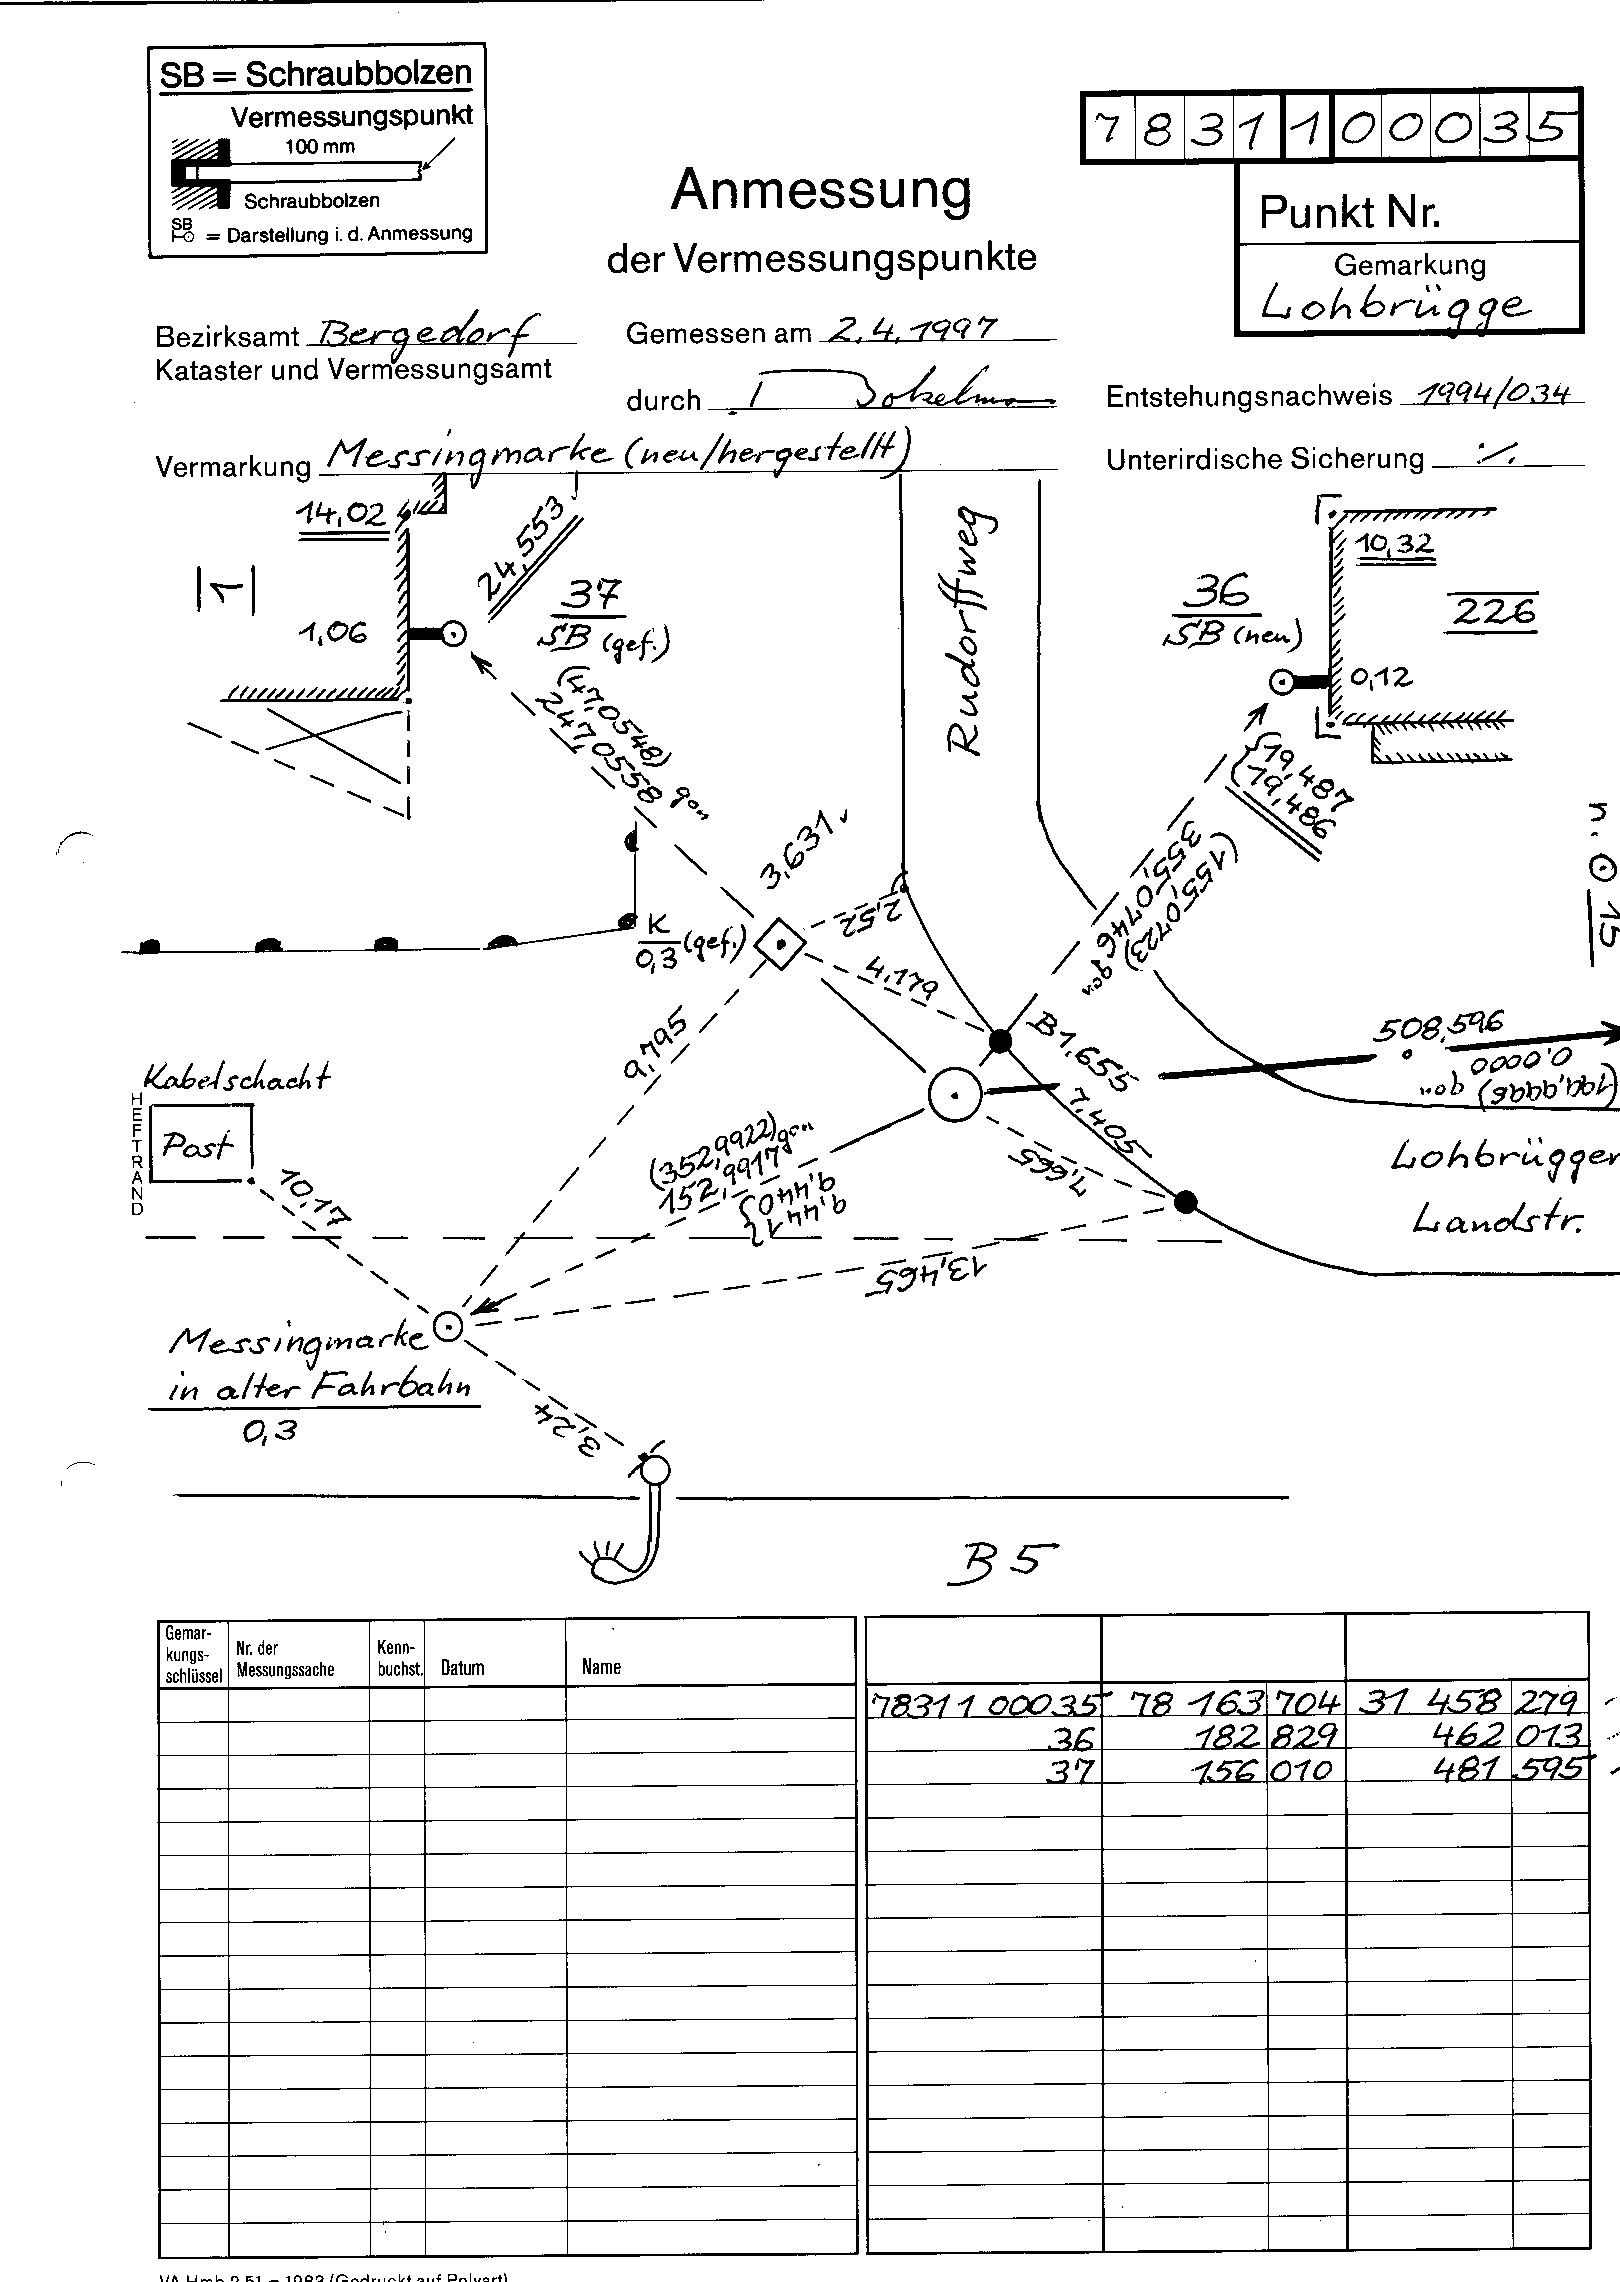 SB = Schraubbolzen
Vermessungspunkt
100 mm
Schraubbolzen
SB
= Darstellung i. d. Anmessung
7 8 3 1 1 0 0 0 3 5
Anmessung
der Vermessungspunkte
Punkt Nr.
Gemarkung
Lohbrügge
Bezirksamt Bergedorf
Kataster und Vermessungsamt
Gemessen am 2.4.1997
durch
Entstehungsnachweis 1994/034
Vermarkung Messingmarke (neu/hergestellt)
Unterirdische Sicherung ./.
14,02
24,553
1
1,06
37
SB (gef.)
(47,0548)
247,0558 gon
Rudorffweg
36
SB (neu)
10,32
226
0,12
19,487
(19,486
355,0746 gon
(155,0723)
n. ⊙ 15
3,631
2,52
K
0,3 (gef.)
4,179
B 1,655
508,596
0,0000
(199,9996) gon
9,795
7,405
Kabelschacht
Post
HEFTRAND
10,17
(352,9922) gon
152,9917
9,440
9,441
7,665
Lohbrügger
Landstr.
13,465
Messingmarke
in alter Fahrbahn
0,3
3,24
B 5
Gemar-
kungs-
schlüssel
Nr. der
Messungssache
Kenn-
buchst.
Datum
Name
78311 00035 78 163 704 31 458 279
36 182 829 462 013
37 156 010 481 595